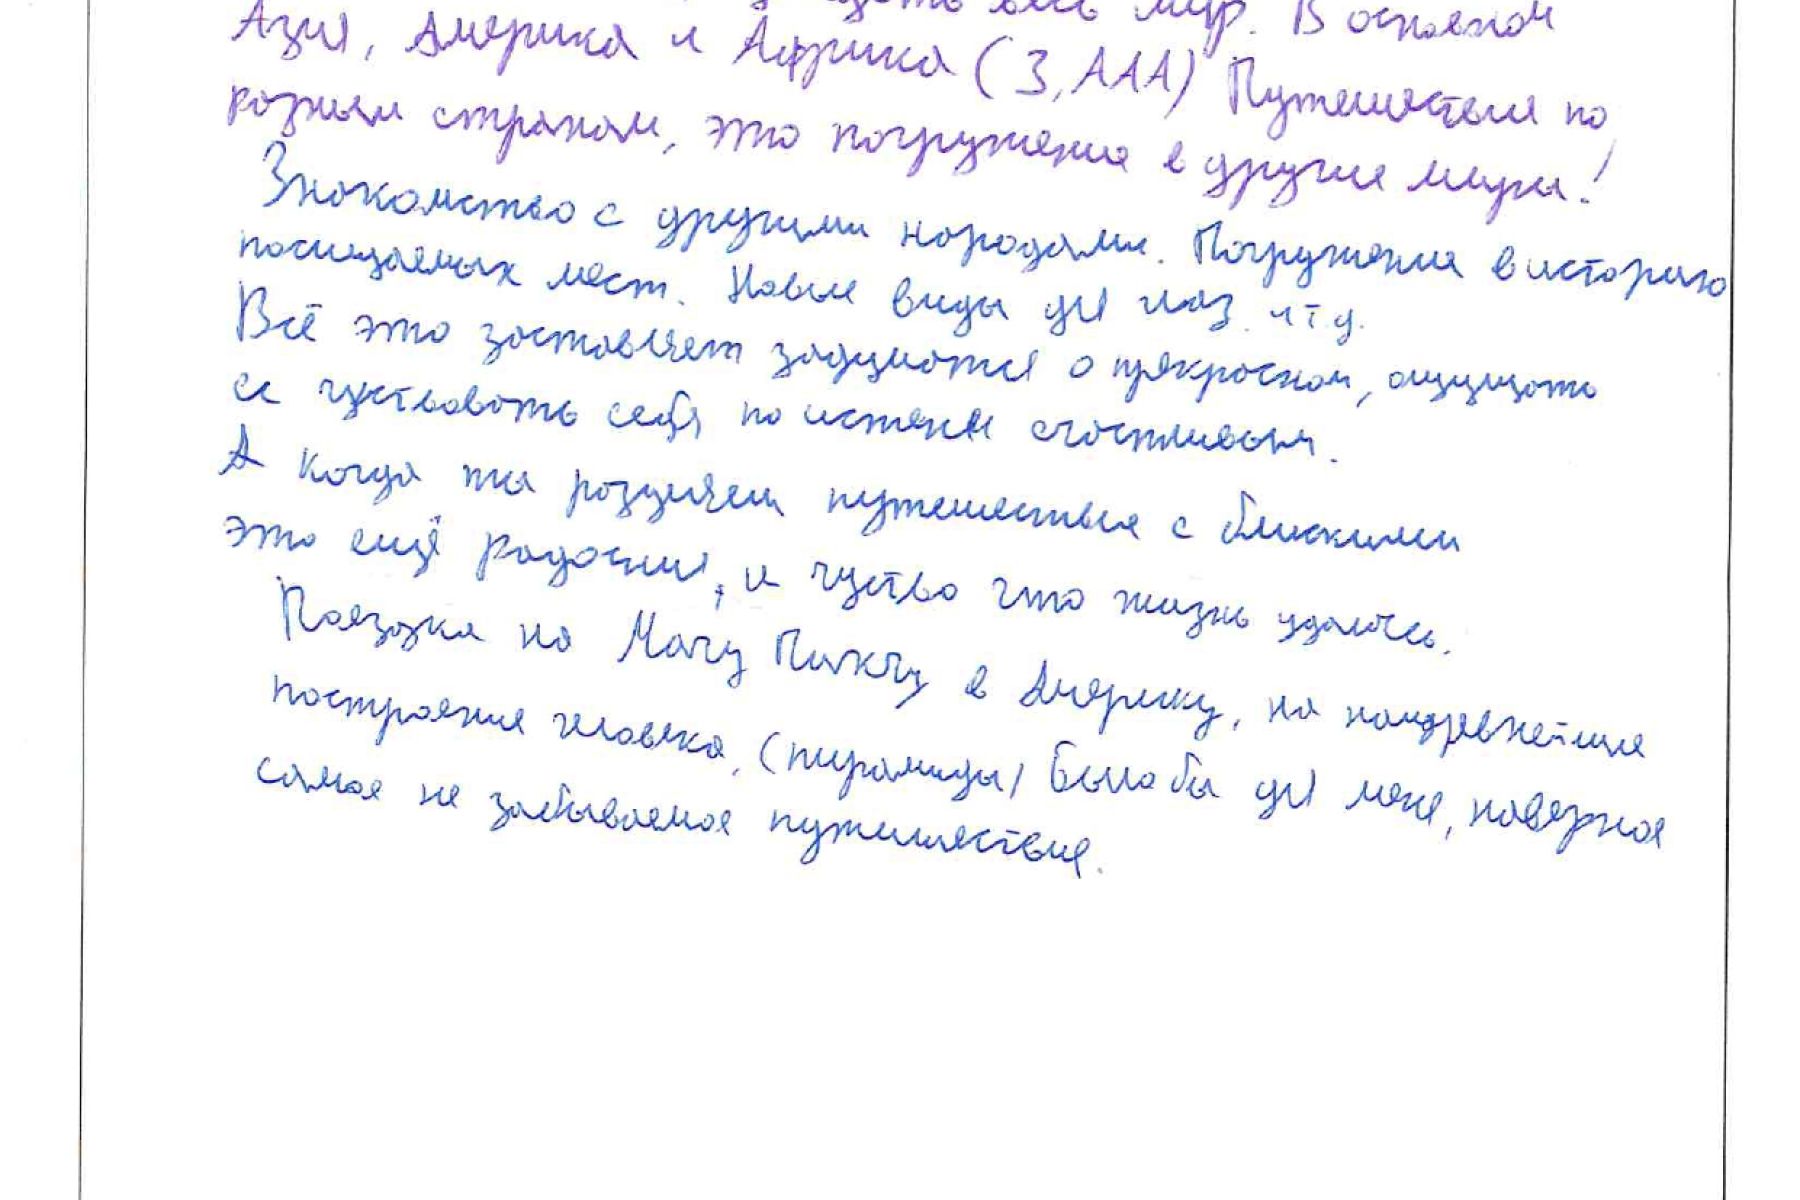 весь мир. В основном
Азия, Америка и Африка (3, ААА) Путешествия по
разным странам, это погружения в другие миры!
Знакомство с другими народами. Погружения в историю
посищаемых мест. Новые виды для глаз и т.д.
Всё это заставляет задуматся о прекрасном, ощущать
и чуствовать себя по истене счастливым.
А когда ты разделяеш путешествия с блискими
это ещё радосния, и чуство что жизнь удалась.
Поездка на Мачу Пикчу в Америку, на наидревнейшие
построения человека, (пирамиды) было бы для меня, наверное
самое не забываемое путишествие.